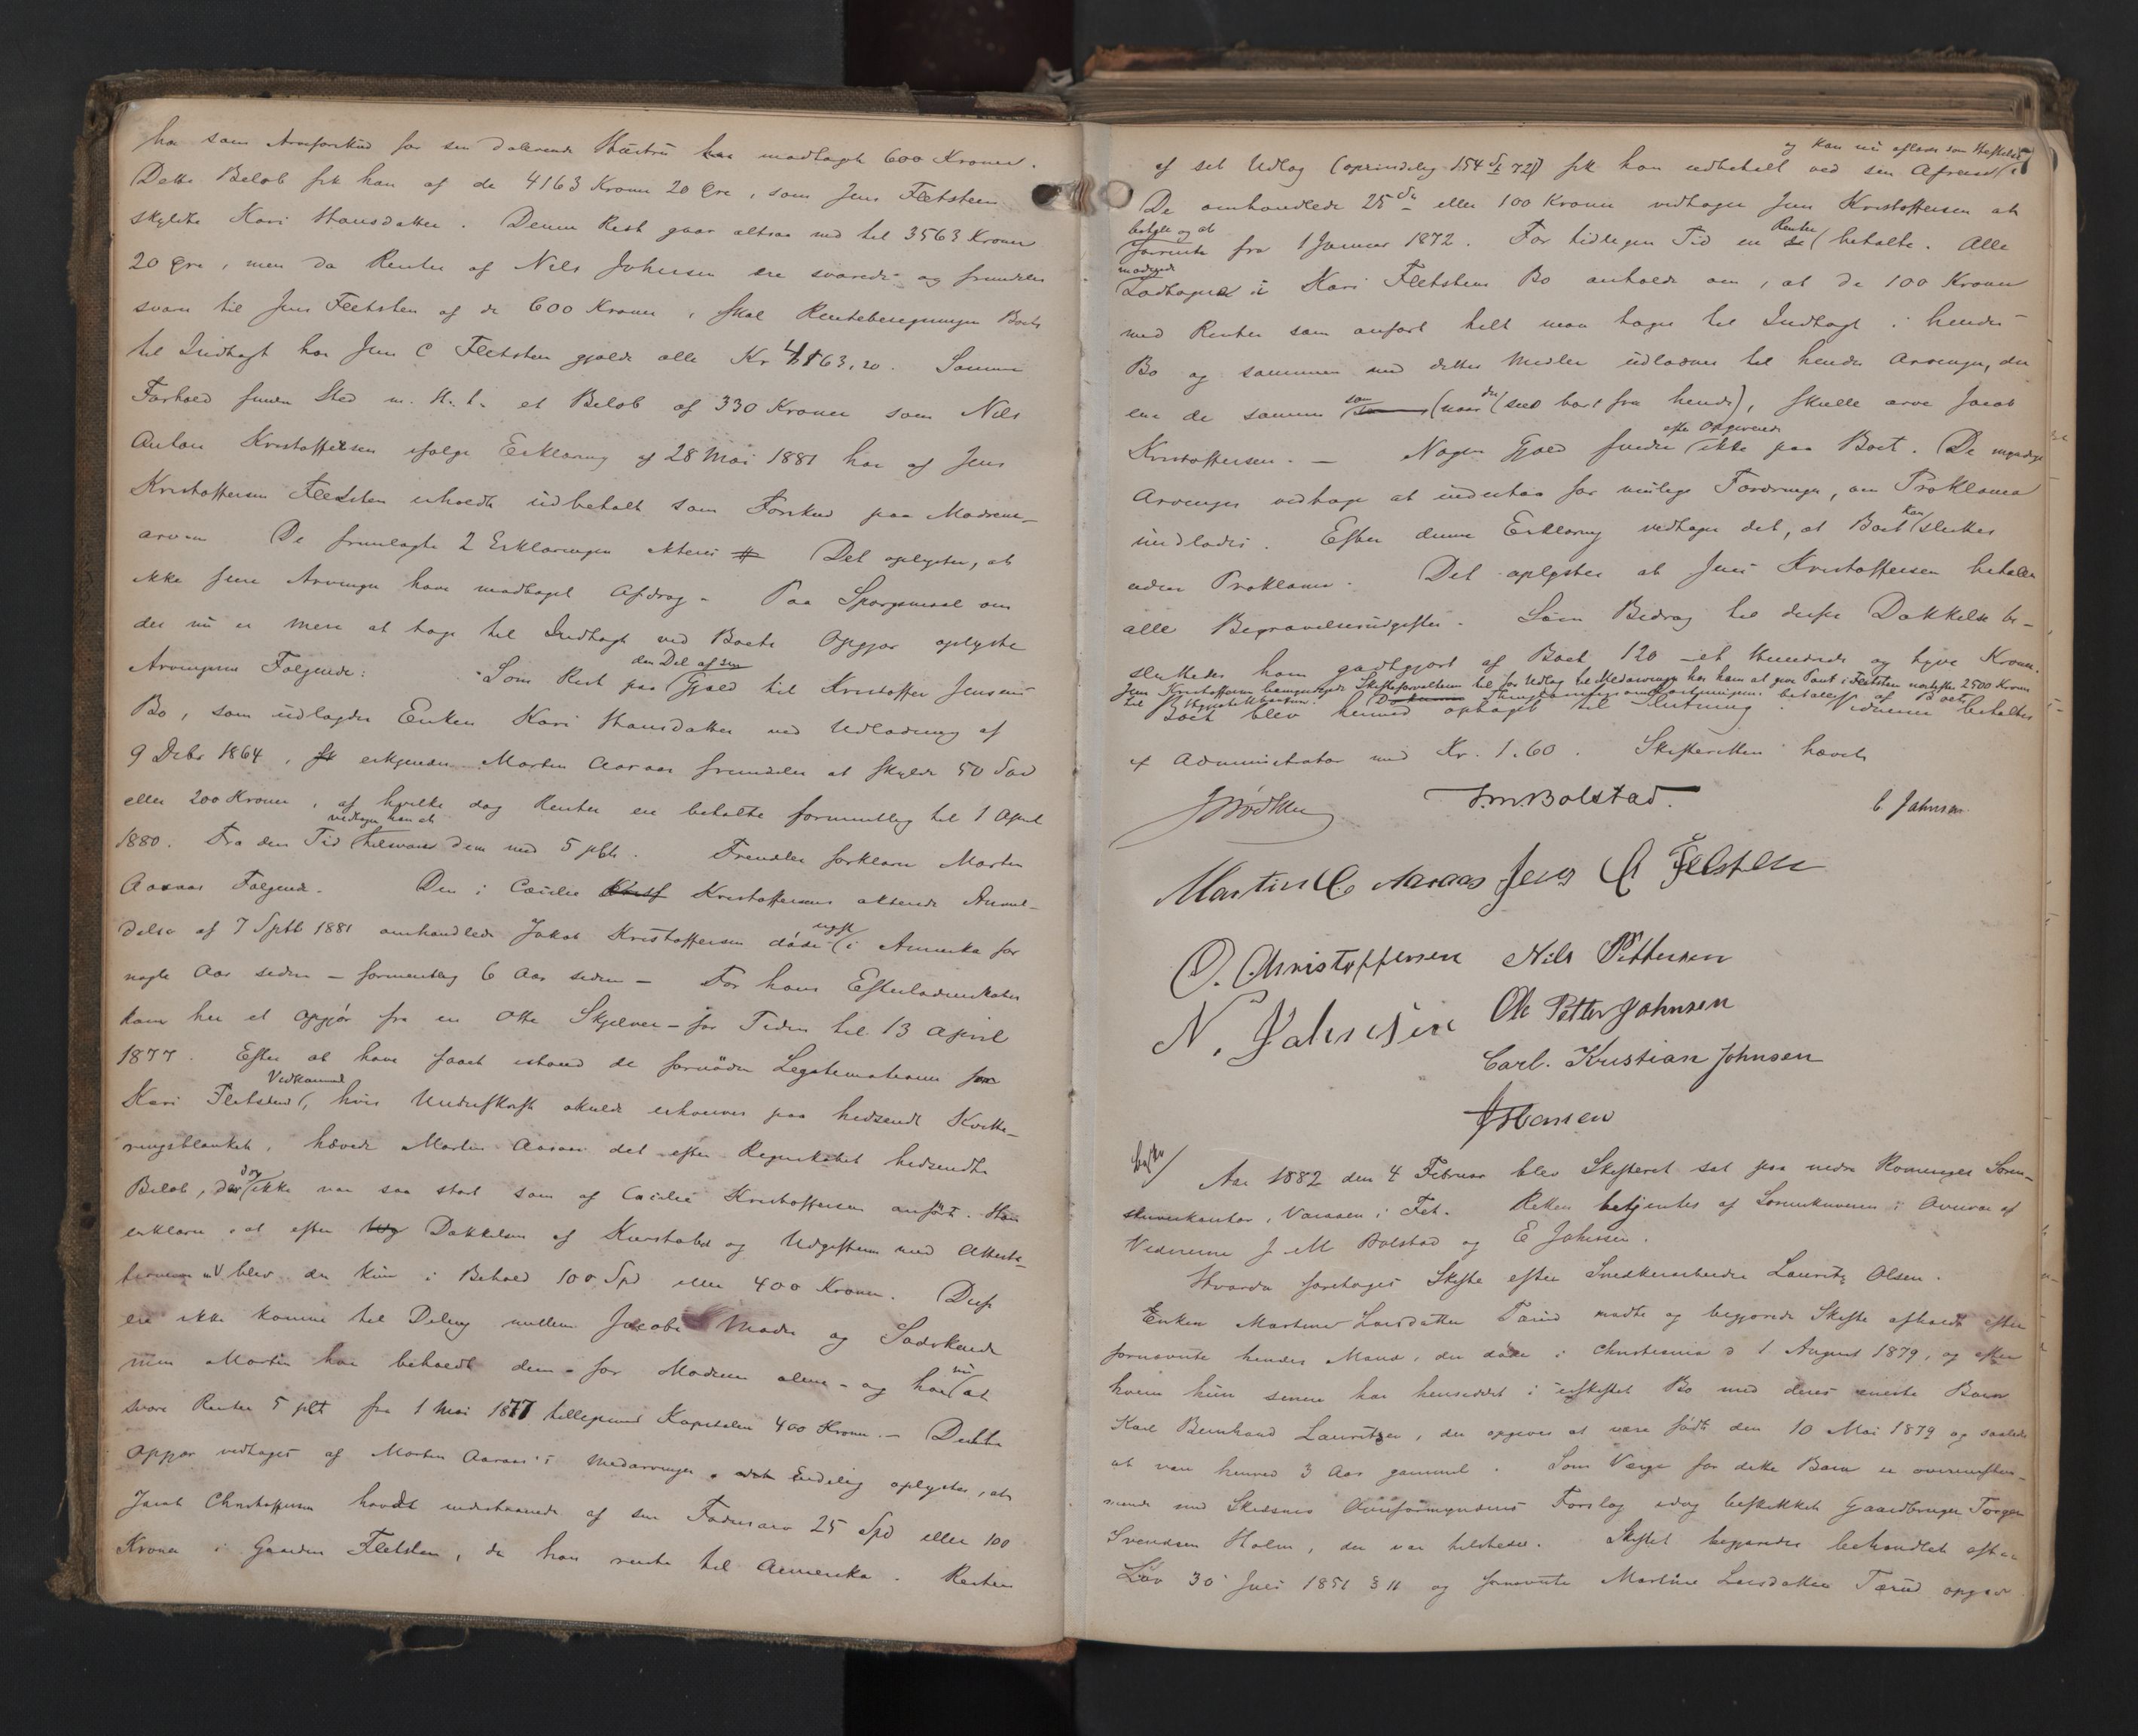 har som Arveforskud for sin daværende Hustru har modtaget 600 Kroner.
Dette Beløb fik han af de 4163 Kroner 20 Øre, som Jens Fletsten
skyldte Kari Hansdatter. Denne Rest gaar altsaa ned til 3563 Kroner
20 Øre, men da Renter af Nils Johnsen ere svarede og fremdeles
svares til Jens Fletsten af de 600 Kroner, skal Renteberegningen Boets
til Indtægt hos Jens C Fletsten gjælde alle Kr 4163,20. Samme
Forhold finder Sted m. H. t. et Beløb af 330 Kroner som Nils
Anton Kristoffersen ifølge Erklæring af 28 Mai 1881 har af Jens
Kristoffersen Fletsten erholdt udbetalt som Forskud paa Mødrene-
arven De fremlagte 2 Erklæringer akteres # Det oplystes, at
ikke flere Arvinger have modtaget Afdrag - Paa Spørgsmaal om
der nu er mere at tage til Indtægt ved Boets Opgjør oplyste
Arvingerne Følgende: den Del af sin
Som Rest paa Gjæld til Kristoffer Jensens
Bo, som udlagdes Enken Kari Hansdatter ved Udlodning af
9 Debr 1864, erkjender Martin Aaraas fremdeles at skylde 50 Spd
eller 200 Kroner, af hvilke dog Renter ere betalte formentlig til 1 April
vedtager han at
1880. Fra den Tid tilsvare dem med 5 pCt. Fremdeles forklarer Martin
Aaraas Følgende. Den i Cæcilie Kristoffersens akterede Anmel-
delse af 7 Septb 1881 omhandlede Jakob Kristoffersen døde ugift i Amerika for
nogle Aar siden - formentlig 6 Aar siden - For hans Efterladenskaber
kom her et Opgjør fra en Otto Skjelver - for Tiden til 13 April
1877. Efter at have faaet istand de fornødne Legitimationer for
Vedkommende
Kari Fletsten, hvis Underskrift skulde erhverves paa hidsendt Kvitte-
ringsblanket, hævede Martin Aaraas det efter Regnskabet hidsendte
Beløb, der dog ikke var saa stort som af Cæcilie Kristoffersen anført. Han
erklærer, at efter Dækkelsen af Kurstabet og Udgifterne med Attesta-
tionerne mV blev der kun i Behold 100 Spd eller 400 Kroner. Disse
ere ikke komne til Deling mellem Jacobs Moder og Sødskende
men Martin har beholdt dem - for Moderen alene - og har nu at
svare Renter 5 pCt fra 1 Mai 1877 tilligemed Kapitalen 400 Kroner. - Dette
Opgjør vedtages af Martin Aaraas's Medarvinger. Endelig oplystes, at
Jacob Christoffersen havde indestaaende af sin Fædrenearv 25 Spd eller 100
Kroner i Gaarden Fletsten, da han reiste til Amerika. Resten
og kan nu aflæses som Heftelse
af sit Udlæg (oprindelig 154 72 β) fik han udbetalt ved sin Afreise
De omhandlede 25 Spd eller 100 Kroner vedtager Jens Kristoffersen at
betale og at
forrente fra 1 Januar 1872. For tidligere Tid ere Renter betalte. Alle
mødende
Lodtagere i Kari Fletstens Bo anholde om, at de 100 Kroner
med Renter som anført helt maa tages til Indtægt i hendes
Bo og sammen med dettes Midler udloddes til hendes Arvinger, der
ere de samme som (naar der sees bort fra hende), skulle arve Jacob
efter Opgivende
Kristoffersen. - Nogen Gjæld findes ikke paa Boet. De myndige
Arvinger vedtage at indestaa for mulige Fordringer, om Proklama
undlades. Efter denne Erklæring vedtages det, at Boet kan sluttes
uden Proklama. Det oplystes at Jens Kristoffersen betaler
alle Begravelsesudgifter. Som Bidrag til disses Dækkelse be-
sluttedes ham godtgjort af Boet 120 - et Hundrede og tyve Kroner.
Jens Kristoffersen bemyndigede Skifteforvalteren til for Udlæg til Medarvinger hos ham at give Pant i Fletsten næstefter 2500 Kroner
til Hypothekbanken. betales af Boet
Boet blev hermed optaget til Slutning. Vidnerne betaltes
af Administrator med Kr. 1.60. Skifteretten hævet
J Bødtker J.M Bolstad. E. Johnsen
Martin C. Aaraas Jens C Fletsten
O. Christoffersen Nils Pettersen
N. Johnsen Ole Petter Johnsen
Carl. Kristian Johnsen
J Hansen
Aar 1882 den 4 Februar blev Skifteret sat paa nedre Romeriges Soren-
skriverkontor, Varaaen i Fet. Retten betjentes af Sorenskriveren i Overvær af
Vidnerne J M Bolstad og E Johnsen.
Hvorda foretages Skifte efter Snedkerarbeider Lauritz Olsen.
Enken Martine Larsdatter Tærud mødte og begjærede Skifte afholdt efter
fornævnte hendes Mand, der døde i Christiania d 1 August 1879, og efter
hvem hun senere har hensiddet i uskiftet Bo med deres eneste Barn
Karl Bernhard Lauritzen, der opgives at være født den 10 Mai 1879 og saaledes
at være henved 3 Aar gammel. Som Værge for dette Barn er overensstem-
mende med Skedsmo Overformynderis Forslag idag beskikket Gaardbruger Torger
Svendsen Holm, der var tilstede. Skiftet begjæredes behandlet efter
Lov 30 Juli 1851 § 11 og fornævnte Martine Larsdatter Tærud opgav